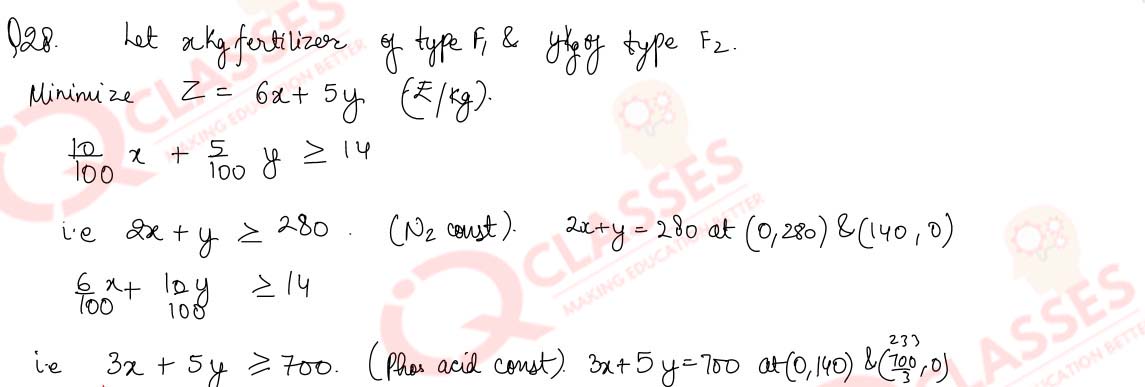 Q28. Let x kg fertilizer of type F₁ & y kg of type F₂.
Minimize Z = 6x + 5y (₹/kg).
10/100 x + 5/100 y ≥ 14
i.e 2x + y ≥ 280. (N₂ const). 2x+y = 280 at (0,280) & (140,0)
6/100 x + 10/100 y ≥ 14
i.e 3x + 5y ≥ 700. (Phos acid const). 3x+5y=700 at (0,140) & (700/3, 0) 233
CLASSES
MAKING EDUCATION BETTER
CLASSES
MAKING EDUCATION BETTER
CLASSES